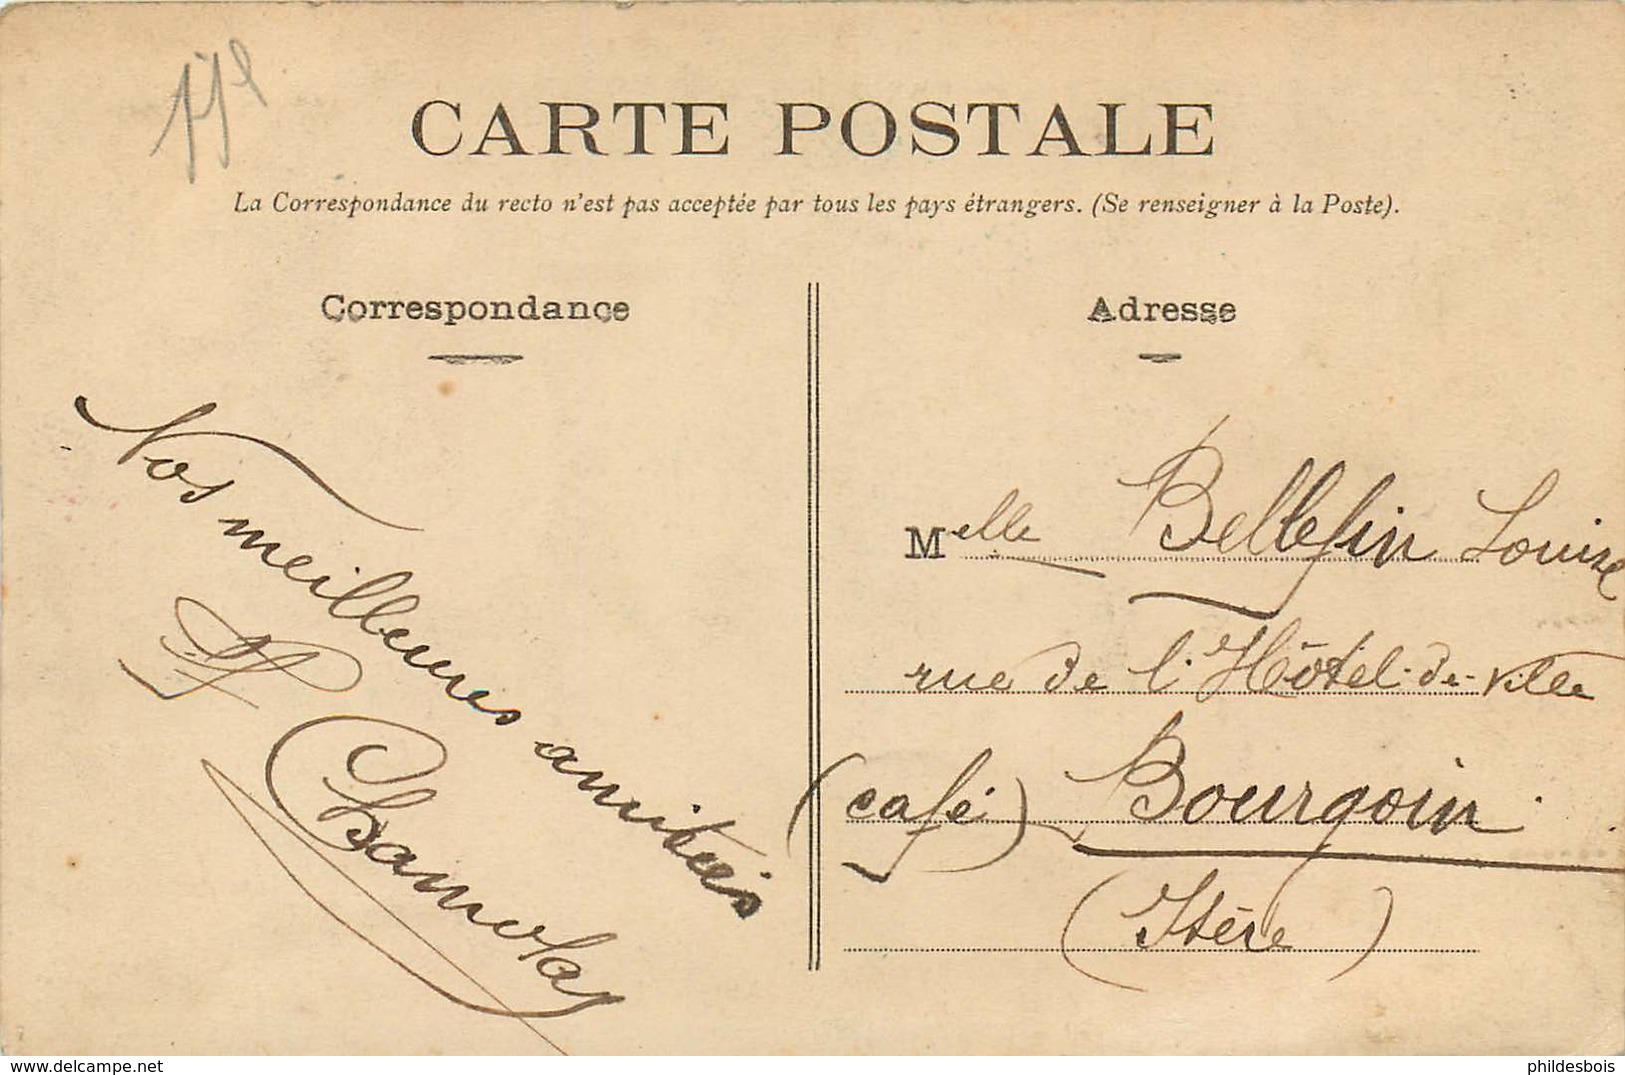 CARTE POSTALE
La Correspondance du recto n'est pas acceptée par tous les pays étrangers. (Se renseigner à la Poste).
Correspondance
Nos meilleures amitiés
Adresse
Melle Bellefin Louise
rue de l'Hôtel-de-Ville
(café) Bourgoin
(Isère)
https://www.delcampe.net
phildesbois